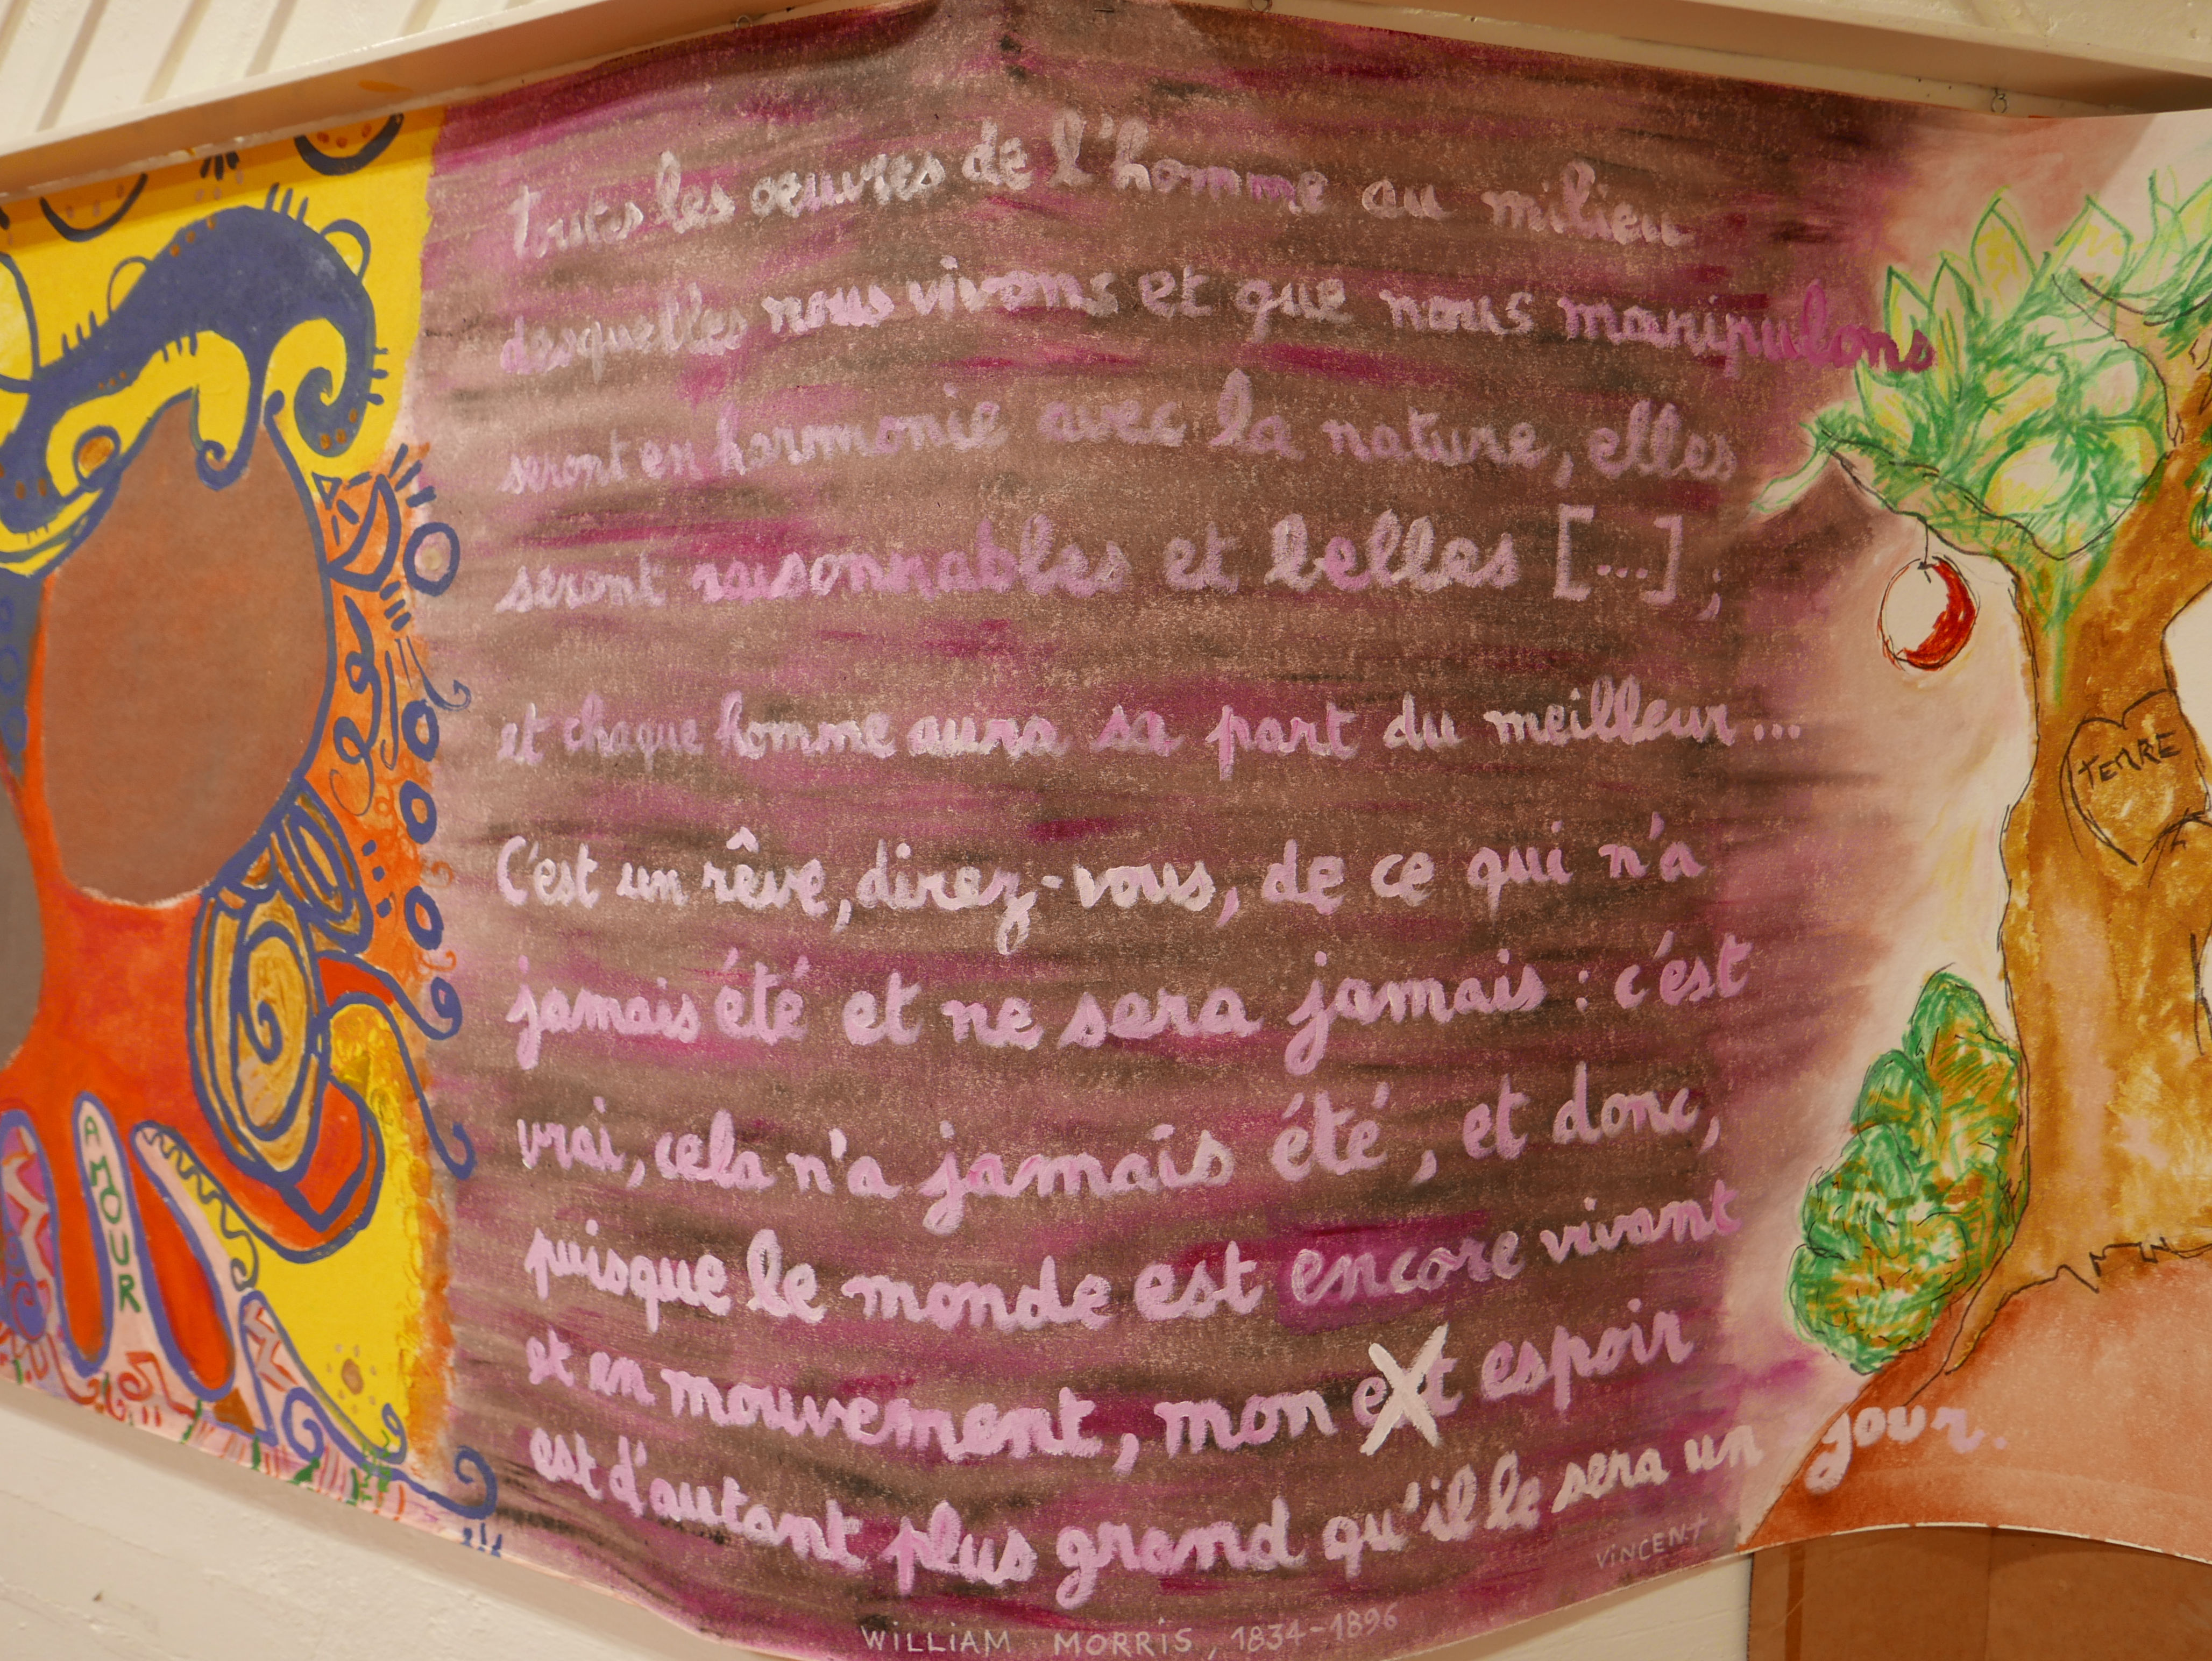 toutes les oeuvres de l'homme au milieu
desquelles nous vivons et que nous manipulons
seront en harmonie avec la nature, elles
seront raisonnables et belles [...] ;
et chaque homme aura sa part du meilleur...
C'est un rêve, direz-vous, de ce qui n'a
jamais été et ne sera jamais : c'est
vrai, cela n'a jamais été, et donc,
puisque le monde est encore vivant
et en mouvement, mon espoir
est d'autant plus grand qu'il le sera un jour.
VINCENT
WILLIAM MORRIS, 1834-1896
AMOUR
TERRE